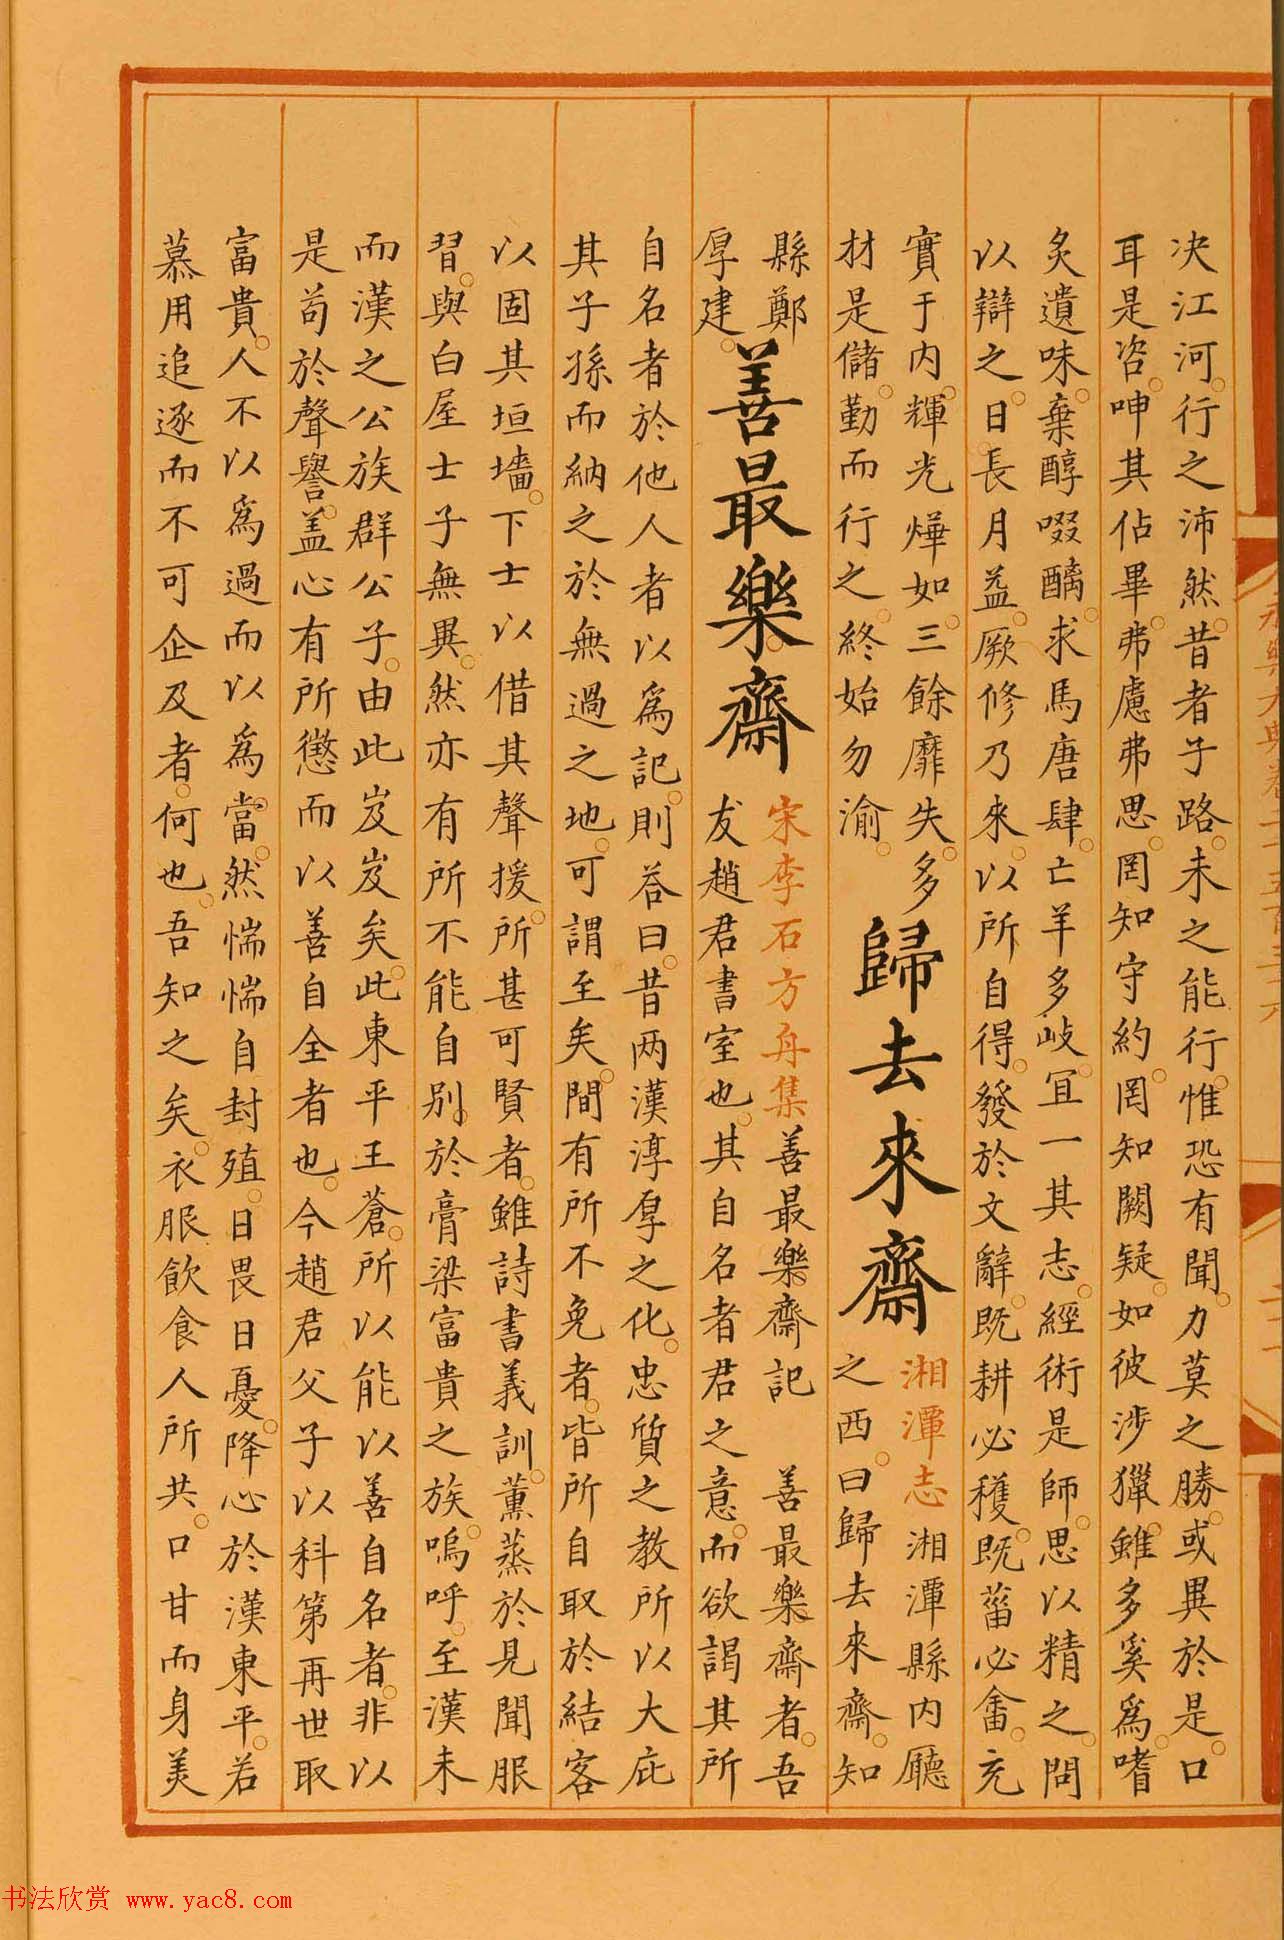 决江河。行之沛然。昔者子路。未之能行。惟恐有聞。力莫之勝。或異於是。口
耳是咨。呻其佔畢。弗慮弗思。罔知守約。罔知闕疑。如彼涉獵。雖多奚爲。嗜
炙遺味。棄醇啜醨。求馬唐肆。亡羊多岐。宜一其志。經術是師。思以精之。問
以辯之。日長月益。厥修乃來。以所自得。發於文辭。既耕必穫。既菑必畬。充
實于内。輝光燁如。三餘靡失。多
材是儲。勤而行之。終始勿渝。
歸去來齋
湘潭志湘潭縣内廳
之西。曰歸去來齋。知
縣鄭
厚建。
善最樂齋
宋李石方舟集善最樂齋記 善最樂齋者。吾
友趙君書室也。其自名者君之意。而欲謁其所
自名者於他人者以爲記。則荅曰。昔两漢淳厚之化。忠質之教所以大庇
其子孫而納之於無過之地。可謂至矣。間有所不免者。皆所自取於結客
以固其垣墻。下士以借其聲援。所甚可賢者。雖詩書義訓。薰蒸於見聞服
習。與白屋士子無異。然亦有所不能自别。於膏粱富貴之族。嗚呼。至漢未
而漢之公族群公子。由此岌岌矣。此東平王蒼。所以能以善自名者。非以
是苟於聲譽。盖心有所懲而以善自全者也。今趙君父子以科第再世取
富貴。人不以爲過而以爲當。然惴惴自封殖。日畏日憂。降心於漢東平。若
慕用追逐而不可企及者。何也。吾知之矣。衣服飲食人所共。口甘而身美
书法欣赏 www.yac8.com